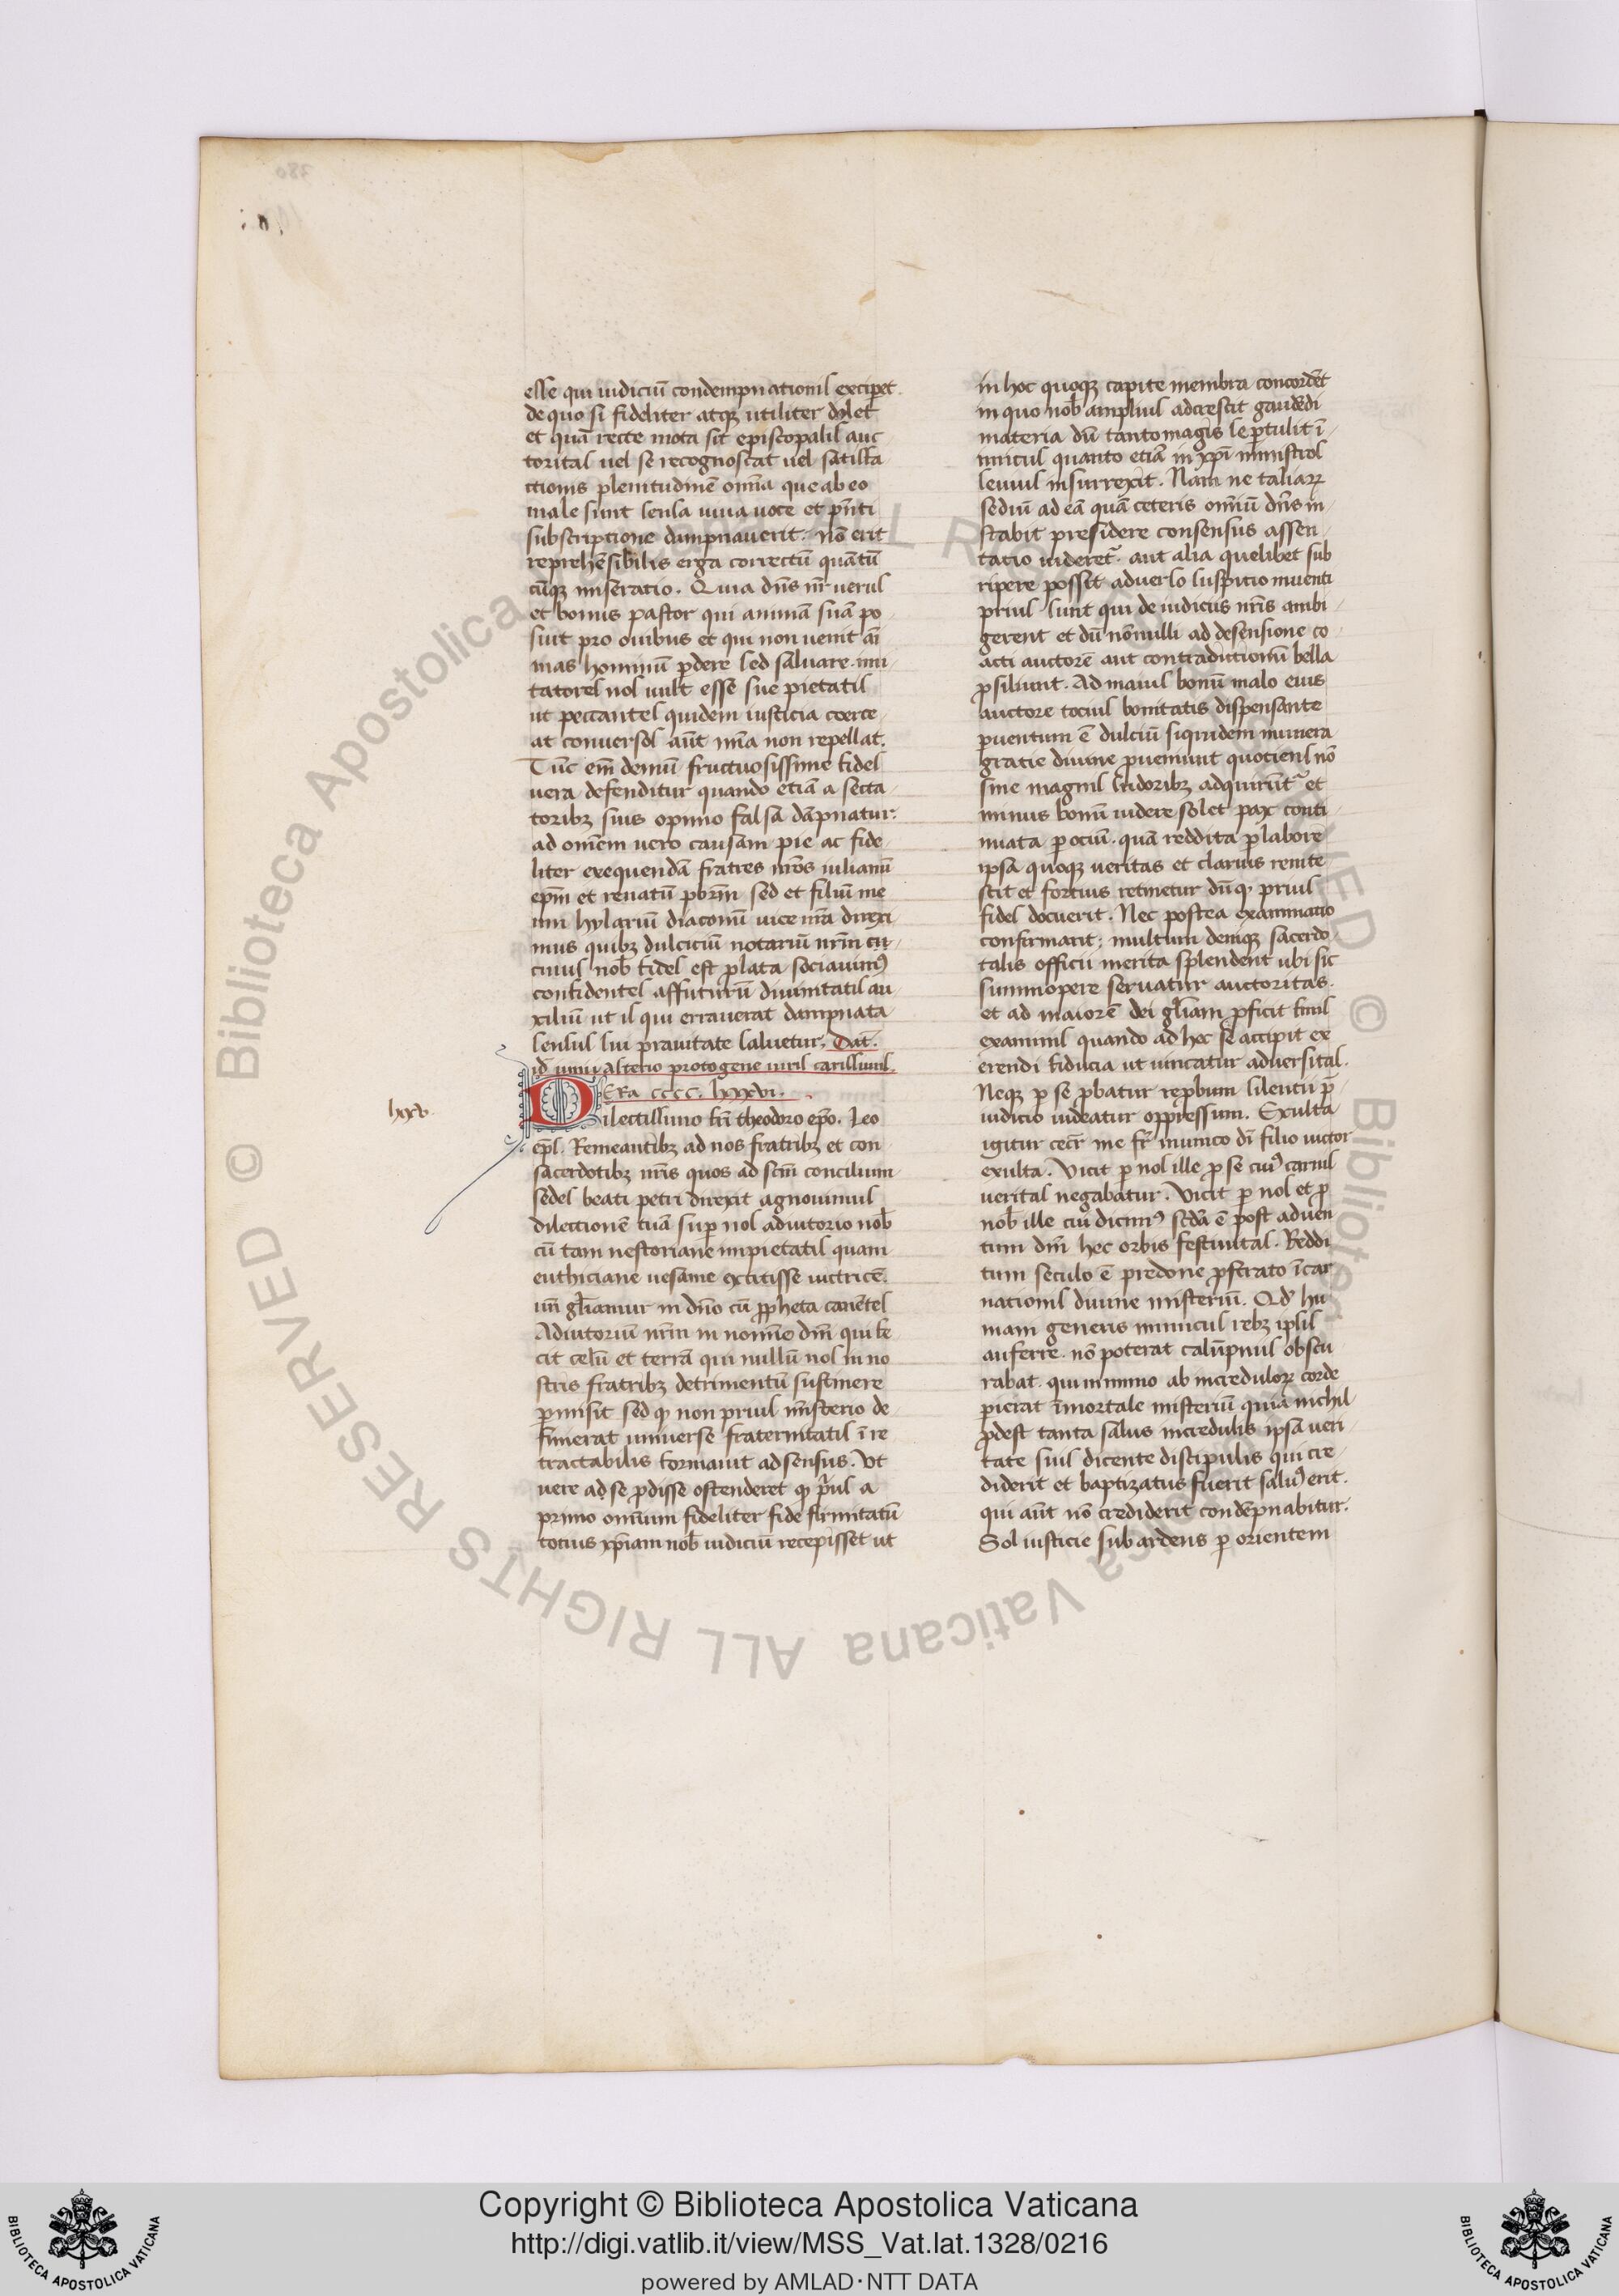 esse qui iudiciū condempnationis exciperet.
de quo si fideliter atqꝫ utiliter dolet
et quā recte mota sit episcopalis auc
toritas uel se recognoscat uel satisfa
ctionis plenitudinē om̄ia que ab eo
male sunt sensa uiua uoce et p̄nti
subscriptione dampnauerit. nō erit
reprehēsibilis erga correctū quātū
cūqꝫ miseratio. Quia dn̄s nr̄ uerus
et bonus pastor qui animā suā po
suit pro ouibus et qui non uenit ai
mas hominū ꝑdere sed saluare. imi
tatores nos uult esse sue pietatis
ut peccantes quidem iusticia coerce
at conuersos aūt mīa non repellat.
Tūc em̄ demū fructuosissime fides
uera defenditur quando etiā a secta
toribꝫ suis opinio falsa dāpnatur.
ad omēm uero causam pie ac fide
liter exequendā fratres nr̄os iulianū
ep̄m et renatū pbrm̄ sed et filiū me
um hylariū diaconū uice nr̄a direxi
mus quibꝫ dulciciū notariū nrm̄ cu
cuius nob̄ fides est ꝓlata sociauimꝰ
confidentes affuturū diuinitatis au
xiliū ut is qui errauerat dampnata
sensus sui prauitate saluetur. Dat̄.
id̄ iunij asterio protogene uiris carissimis.
ERa cccc. lxxxvi.
lxxv.
Dilectissimo fr̄i theodoro ep̄o. Leo
ep̄s. Remeantibꝫ ad nos fratribꝫ et con
sacerdotibꝫ nr̄is quos ad scm̄ concilium
sedes beati petri direxit agnouimus
dilectionē tuā suꝑ nos adiutorio nob̄
cū tam nestoriane impietatis quam
euthiciane uesanie extitisse uictricē.
un̄ gl̄iamur in dn̄o cū ꝓpheta canētes
Adiutoriū nrm̄ in nomīe dn̄i qui fe
cit celū et terrā qui nullū nos in no
stris fratribꝫ detrimentū sustinere
ꝑmisit sed ꝙ non prius mīsterio de
finierat uniuerse fraternitatis īre
tractabilis formauit adsensus. Ut
uere ad se ꝓdisse ostenderet ꝙ prius a
primo omnium fideliter fide firmitatū
totius xp̄iam nob̄ iudiciū recepisset ut
in hoc quoqꝫ capite membra concordēt
in quo nob̄ amplius adcrescit gaudēdi
materia dū tanto magis se ꝑtulit ī
imicus quanto etiā in xp̄i ministros
seuius insurrexit. Nam ne taliaꝝ
sediū ad eā quā ceteris om̄iū dn̄s in
stabit presidere consensus assen
tatio uideret᷑. aut alia quelibet sub
ripere possit aduerso suspitio inuenti
prius sunt qui de iudicus nr̄is ambi
gerent et dū nōnulli ad defensione co
acti auctorē aut contradictionū bella
ꝓsiluerit. Ad maius bonū malo eius
auctore tocius bonitatis dispensante
ꝑuentum ē dulciū siquidem munera
gratie diuine ꝑueniunt quociens nō
sine magnis sudoribꝫ adquirūt᷑ et
minus bonū uidere solet pax conti
nuata ꝑ ociū. quā reddita ꝑ labore
ipsa quoqꝫ ueritas et clarius renite
scit et fortius retinetur dū ꝙ prius
fides docuerit. Nec postea examinatio
confirmarit; multum deniqꝫ sacerdo
talis officii merita splendent ubi sic
summopere seruatur auctoritas.
et ad maiorē dei gl̄iam ꝓficit simil
examinis quando ad hec se accipit ex
erendi fiducia ut uincatur aduersitas.
Neqꝫ ꝑ se ꝓbatur repbum silentii p̄
iudicio uideatur oppressum. Exulta
igitur cecr̄ me fr̄ inimico di filio uictor
exulta. Vicit ꝑ nos ille ꝓ se cuiꝰ carnis
ueritas negabatur. Vicit ꝑ nos et ꝓ
nob̄ ille cui dicimꝰ scd̄a ē post aduen
tum dn̄i hec orbis festiuitas. Reddi
tum seculo ē predone ꝓstrato īcar
nationis diuine misteriū. Qd̄ hu
mani generis inimicus rebꝫ ipsis
auferre. nō poterat calūpniis obscu
rabat. qui inimmo ab incredulorꝫ corde
ꝑierat īmortale misteriū quia nichil
ꝓdest tanta salus incredulis ipsa ueri
tate suis dicente discipulis qui cre
diderit et baptizatus fuerit saluꝰ erit.
qui aūt nō crediderit condēpnabitur.
Sol iusticie sub ardens ꝑ orientem
Copyright © Biblioteca Apostolica Vaticana
http://digi.vatlib.it/view/MSS_Vat.lat.1328/0216
powered by AMLAD·NTT DATA